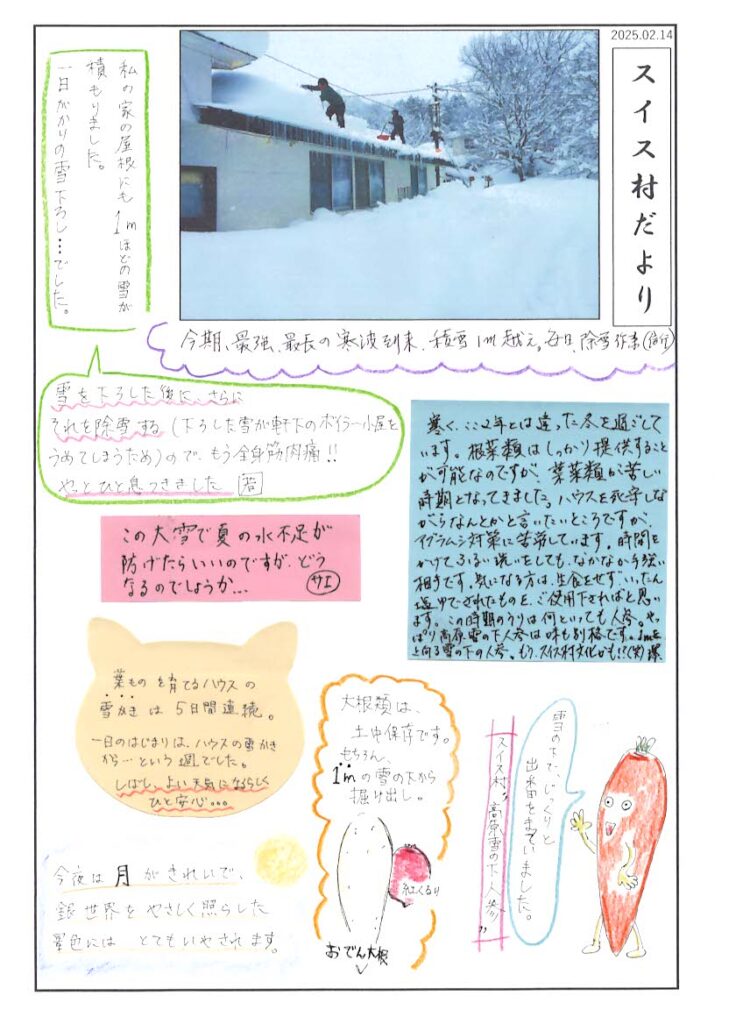 2025.02.14
スイス村だより
私の家の屋根にも1mほどの雪が
積もりました。
一日がかりの雪下ろし…でした。
今期、最強、最長の寒波到来、積雪1m越え。毎日、除雪作業
雪を下ろした後に、さらに
それを除雪する(下ろした雪が軒下のボイラー小屋を
うめてしまうため)ので、もう全身筋肉痛!!
やっとひと息つきました
寒く、ここ2年とは違った冬を過ごして
います。根菜類はしっかり提供すること
が可能なのですが、葉菜類が苦しい
時期となってきました。ハウスを死守しな
がらなんとかと言いたいところですが、
イブラムシ対策に苦常しています。時間を
かけて、ふるい洗いをしても、なかなか手強い
相手です。気になる方は、生食をせず、いったん
塩ゆでされたものを、ご使用下さればと思い
ます。この時期のうりは何といっても人参。やっ
ぱり高原雪の下人参は味も別格です。1mを
上回る雪の下の人参、もう、スイス村文化かも!!(笑)
この大雪で夏の水不足が
防げたらいいのですが、どう
なるのでしょうか…
サエ
葉ものを育てるハウスの
雪かきは5日間連続。
一日のはじまりは、ハウスの雪かき
から…という週でした。
しばし、よい天気になるらしく
ひと安心…
大根類は、
土中保存です。
もちろん、
1mの雪の下から
掘り出し。
紅くるり
おでん大根
スイス村"高原雪の下人参"
雪の下で、じっくりと
出番をまっていました。
今夜は月がきれいで、
銀世界をやさしく照らした
景色には とてもいやされます。